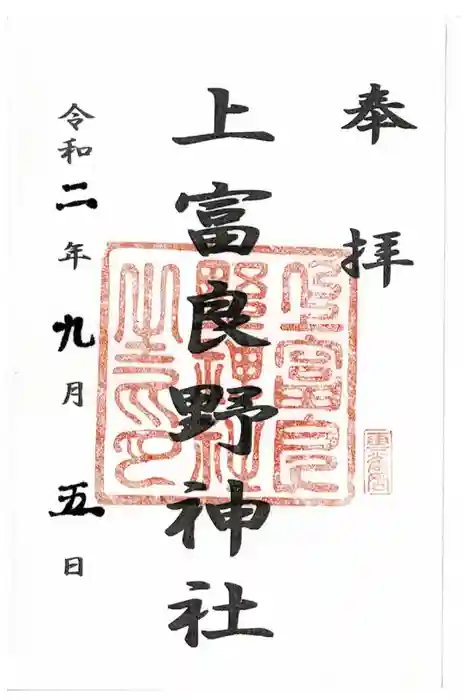 奉拝
上富良野神社
上富良野神社之印
令和二年九月五日